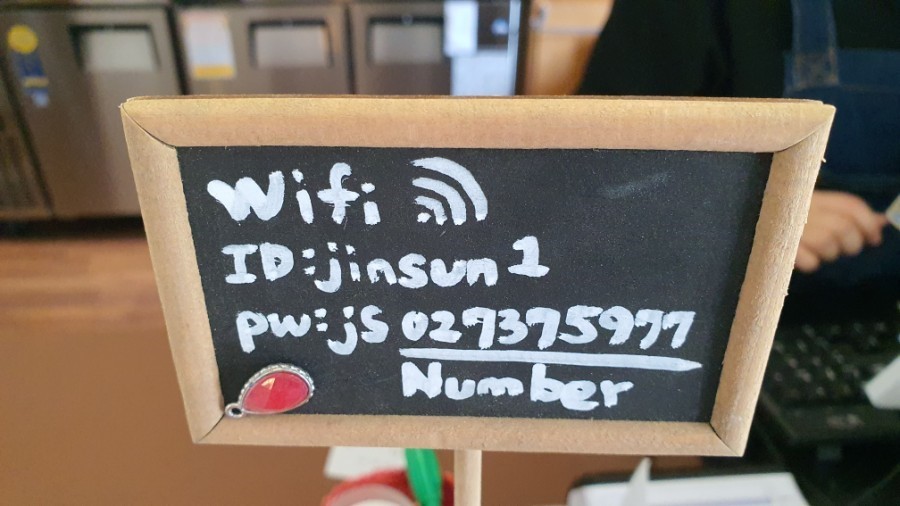 Wifi
ID:jinsun1
pw:js 027375977
Number